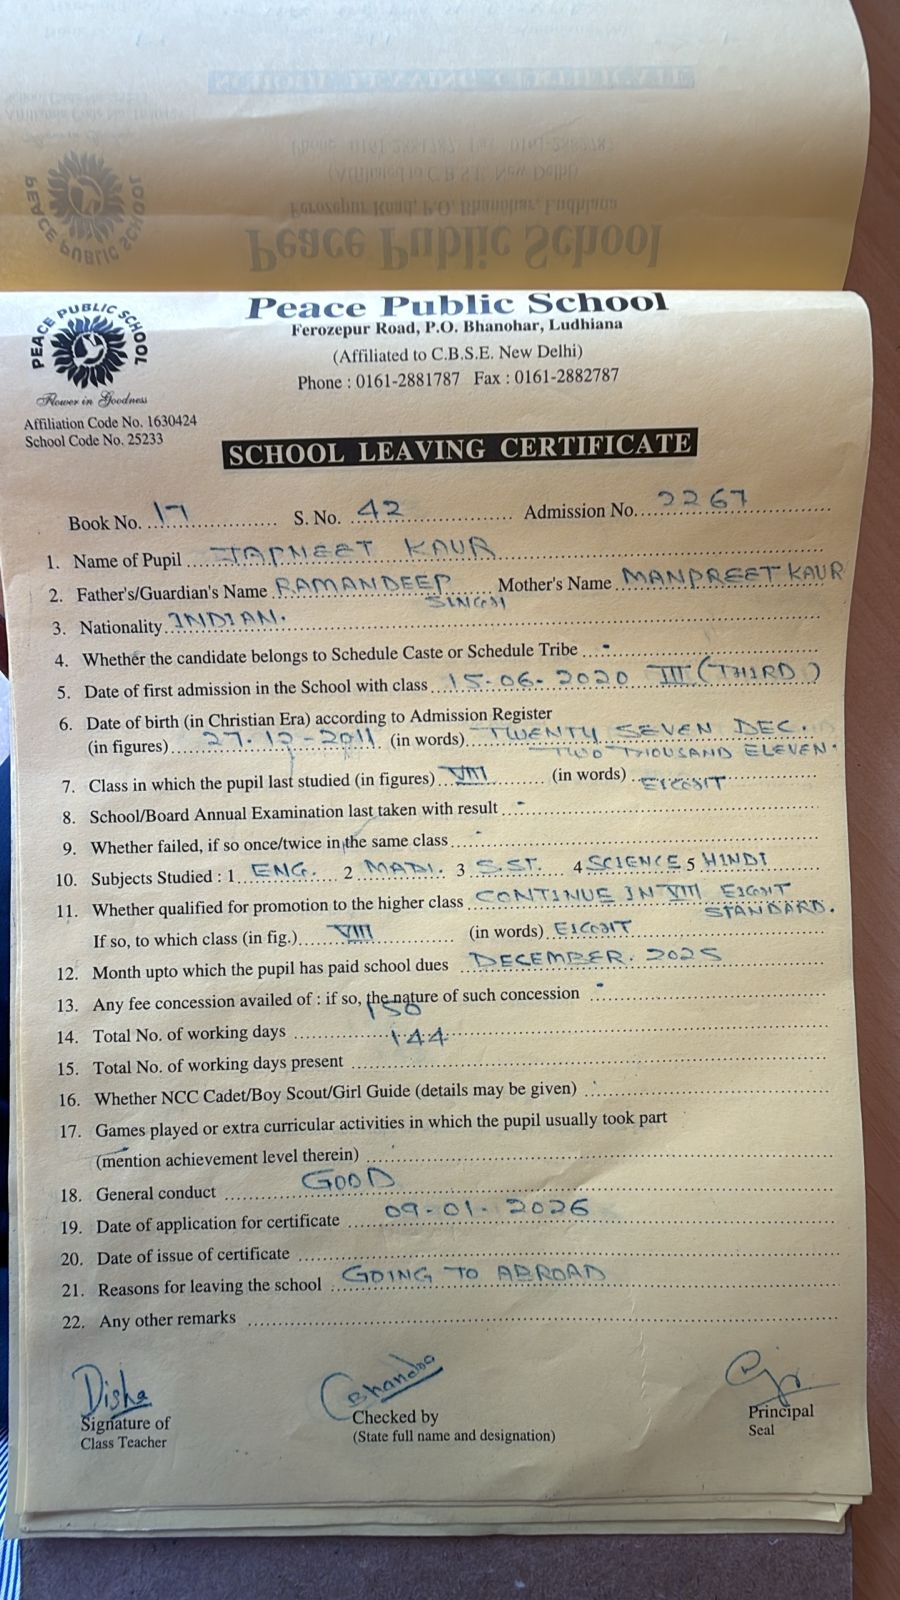 PEACE PUBLIC SCHOOL
Flower in Goodness
Affiliation Code No. 1630424
School Code No. 25233
Peace Public School
Ferozepur Road, P.O. Bhanohar, Ludhiana
(Affiliated to C.B.S.E. New Delhi)
Phone : 0161-2881787 Fax : 0161-2882787
SCHOOL LEAVING CERTIFICATE
Book No. 17 S. No. 42 Admission No. 2267
1. Name of Pupil JAPNEET KAUR
2. Father's/Guardian's Name RAMANDEEP SINGH Mother's Name MANPREET KAUR
3. Nationality INDIAN.
4. Whether the candidate belongs to Schedule Caste or Schedule Tribe -
5. Date of first admission in the School with class 15-06-2020 III (THIRD)
6. Date of birth (in Christian Era) according to Admission Register
(in figures) 27-12-2011 (in words) TWENTY SEVEN DEC.
TWO THOUSAND ELEVEN.
7. Class in which the pupil last studied (in figures) VIII (in words) EIGHT
8. School/Board Annual Examination last taken with result -
9. Whether failed, if so once/twice in the same class -
10. Subjects Studied : 1 ENG. 2 3 S.ST. 4 SCIENCE 5 HINDI
11. Whether qualified for promotion to the higher class CONTINUE IN VIII EIGHT
STANDARD.
If so, to which class (in fig.) VIII (in words) EIGHT
12. Month upto which the pupil has paid school dues DECEMBER. 2025
13. Any fee concession availed of : if so, the nature of such concession -
150
14. Total No. of working days
144
15. Total No. of working days present
16. Whether NCC Cadet/Boy Scout/Girl Guide (details may be given) -
17. Games played or extra curricular activities in which the pupil usually took part
(mention achievement level therein)
18. General conduct GOOD
19. Date of application for certificate 09-01-2026
20. Date of issue of certificate
21. Reasons for leaving the school GOING TO ABROAD
22. Any other remarks
Disha
Signature of
Class Teacher
Checked by
(State full name and designation)
Principal
Seal